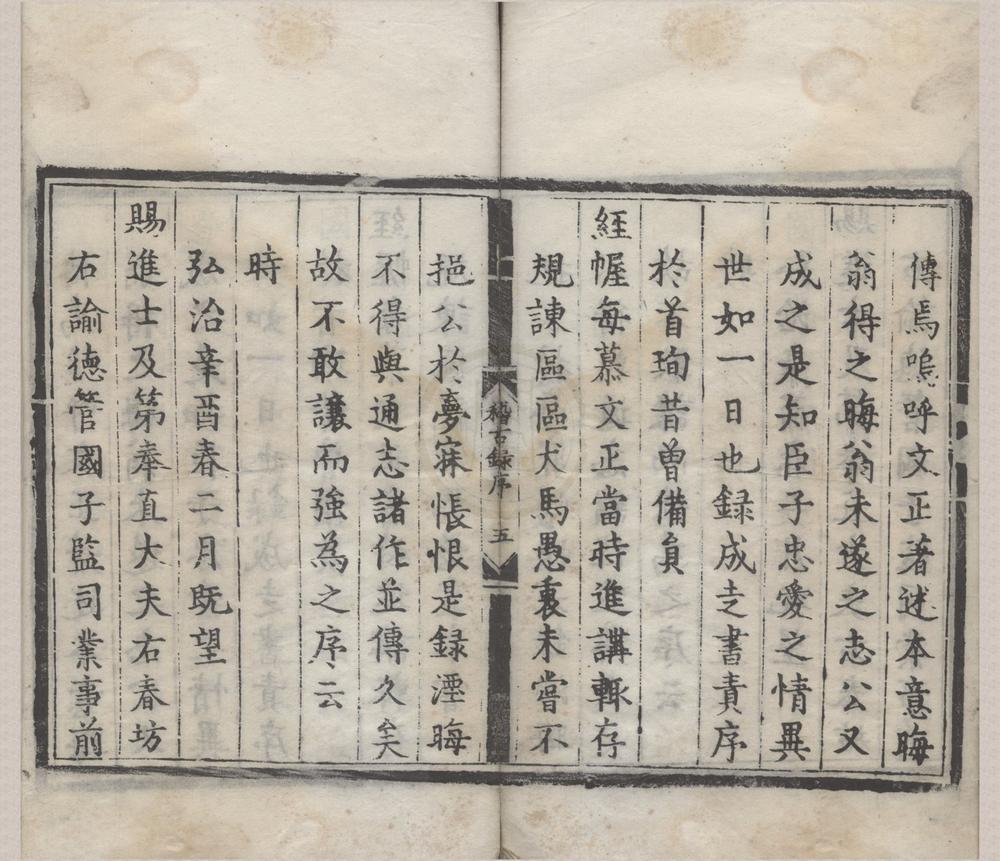 傳焉嗚呼文正著述本意晦
翁得之晦翁未遂之志公又
成之是知臣子忠愛之情異
世如一日也録成走書責序
於首珣昔曾備員
經幄每慕文正當時進講輒存
規諌區區犬馬愚衷未嘗不
稽古録序 五
挹公於夢寐悵恨是録湮晦
不得與通志諸作並傳久矣
故不敢讓而強為之序云
時
弘治辛酉春二月既望
賜進士及第奉直大夫右春坊
右諭德管國子監司業事前